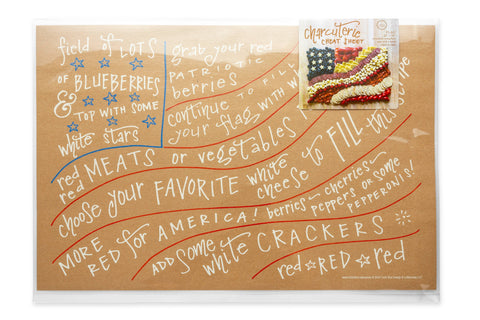 charcuterie
CHEAT SHEET
field of LOTS
OF BLUEBERRIES
& TOP WITH SOME
white stars
grab your red
PATRIOTIC
berries
continue TO FILL
your flag WITH
red MEATS or vegetables
red
choose your FAVORITE white cheese to FILL this
MORE RED for AMERICA! berries cherries
peppers or some
PEPPERONIS!
ADD some white CRACKERS
red RED red